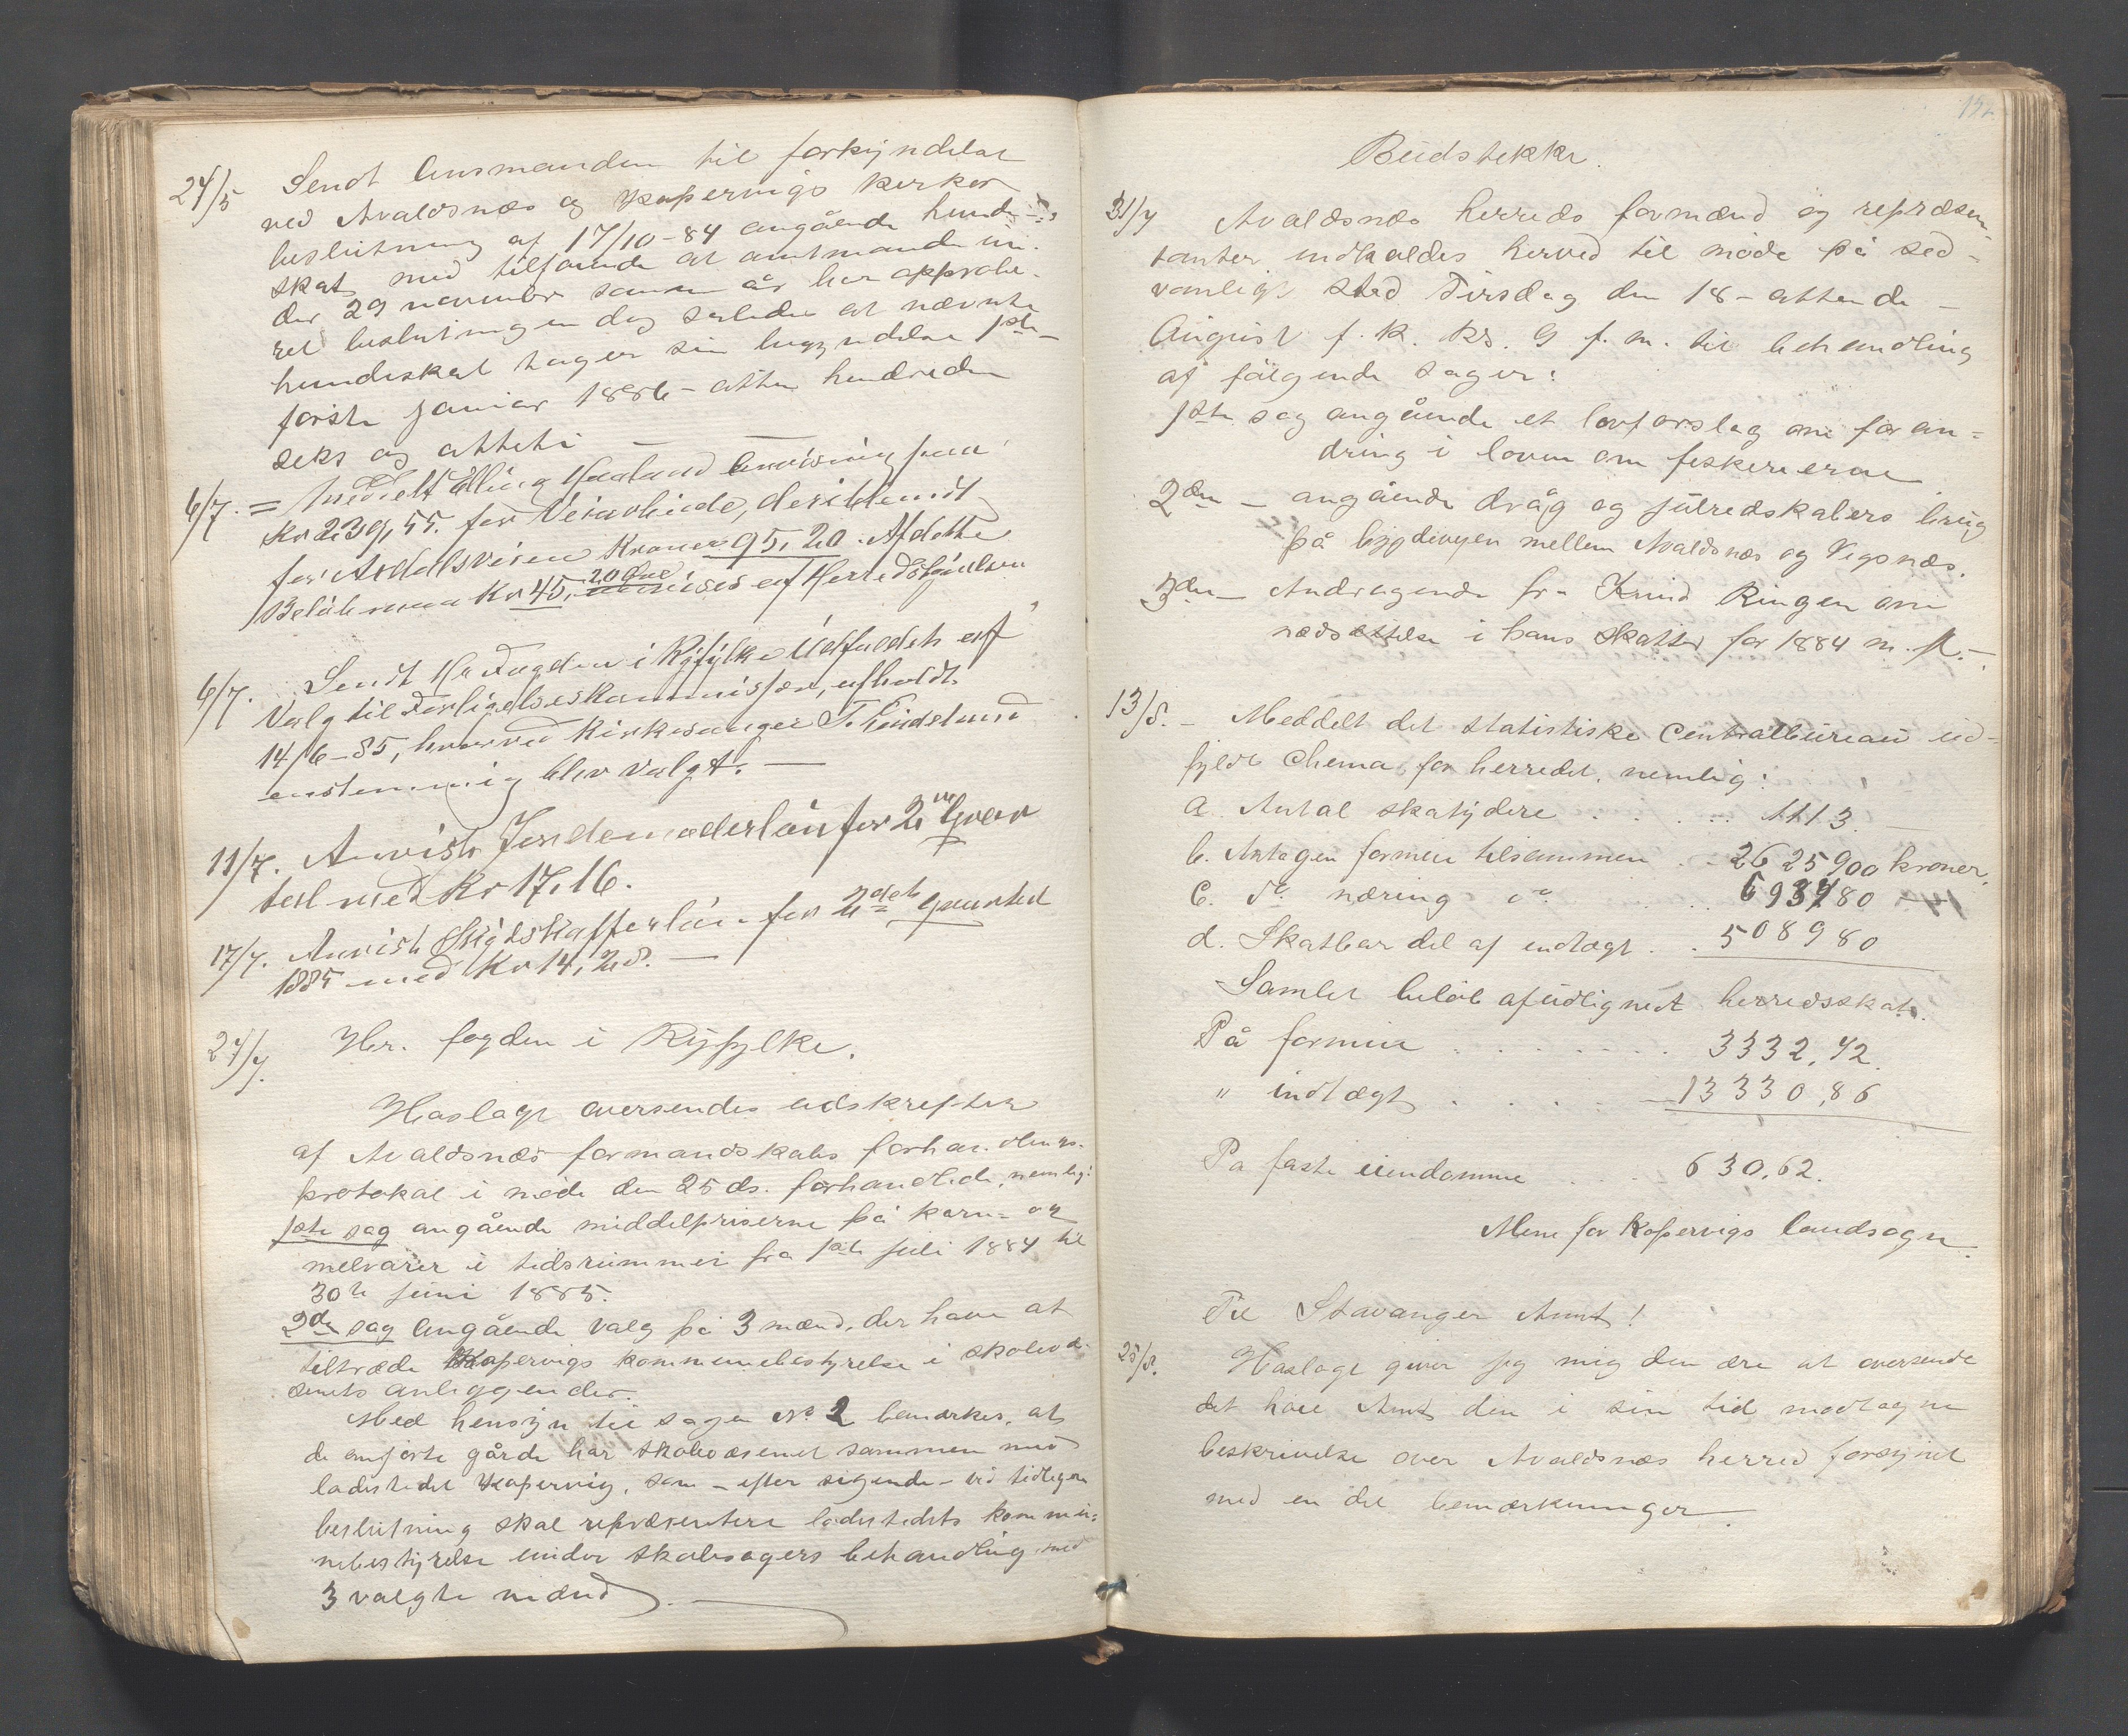 24/5 Sendt lensmanden til forkyndelse
ved Avaldsnæs og Kopervigs kirker
beslutning af 17/10-84 angående hunde-
skat med tilføiende at amtmanden un-
der 29 november samme år har approbe-
ret beslutningen dog således at nævnte
hundeskat tager sin begyndelse 1ste
förste januar 1886 - atten hundrede
seks og otteti
6/7. = Meddelt Elling Haaland Anvisning paa
Kr 239,55. for Veiarbeide, deriblandt
for Ardalsveien Kroner 95,20. Af dette
Beløb maa Kr 45, 20 Øre anvises af Herredskassen
6/7. Sendt Hr Fogden i Ryfylke Udfaldet af
Valg til Forligelseskommissær, afholdt
14/6-85, hvorved Kirkesanger T. Eindeland
enstemmig blev valgt. —
11/7. Anvist Jordemoderløn for 2det Qvar
tal med Kr 17,16.
17/7. Anvist Skydsskafferløn for 2det Qvartal
1885 med Kr 14,28. —
27/7. Hr. fogden i Ryfylke.
Hoslagt oversendes udskrifter
af Avaldsnæs formandskabs forhandlings-
protokol i møde den 25 ds. forhandlede, nemlig:
1ste sag angående middelpriserne på korn- og
melvarer i tidsrummet fra 1ste juli 1884 til
30te juni 1885.
2den sag angående valg på 3 mænd, der have at
tiltræde Kopervigs kommunebestyrelse i skolevæ-
senets anliggender.
Med hensyn til sagen No 2 bemærkes, at
de anførte gårde har skolevæsenet sammen med
ladestedet Kopervig, som - efter sigende - ved tidligere
beslutning skal repræsentere ladestedets kommu-
nebestyrelse under skolesagers behandling med
3 valgte mænd. —
152
Budstikke.
31/7 Avaldsnæs herreds formænd og repræsen-
tanter indkaldes herved til møde på sed-
vanligt sted Tirsdag den 18 - attende -
August f. k. kl. 9 f. m. til behandling
af følgende sager:
1ste sag angående et lovforslag om foran-
dring i loven om fiskerierne
2den — angående dråg og julredskabers brug
på bygdeveien mellem Avaldsnæs og Vigsnæs.
3den — Andragende fra Knud Ringen om
nedsættelse i hans skatter for 1884 m. f. —
13/8. - Meddelt det statistiske Centralbureau ud-
fyldt Chema for herredet, nemlig:
a. Antal skatydere . . . . . 1113. —
b. Antagen formue tilsammen . . 2625900 kroner.
c. do næring do . . 693780 —
d. Skatbar del af indtægt . . 508980
Samlet beløb af udlignet herredsskat.
På formue . . . . . . 3332,42.
" indtægt . . . . . 13330,86
På faste eiendomme . . . 630,62.
Alene for Kopervigs landsogn.
Til Stavanger Amt!
25/8. Hoslagt giver jeg mig den ære at oversende
det høie Amt den i sin tid modtagne
beskrivelse over Avaldsnæs herred forsynet
med en del bemærkninger.